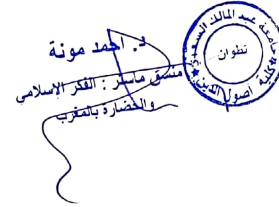 د. أحمد مونة
منسق ماستر : الفكر الإسلامي
والحضارة بالمغرب
جامعة عبد المالك السعدي
تطوان
كلية أصول الدين